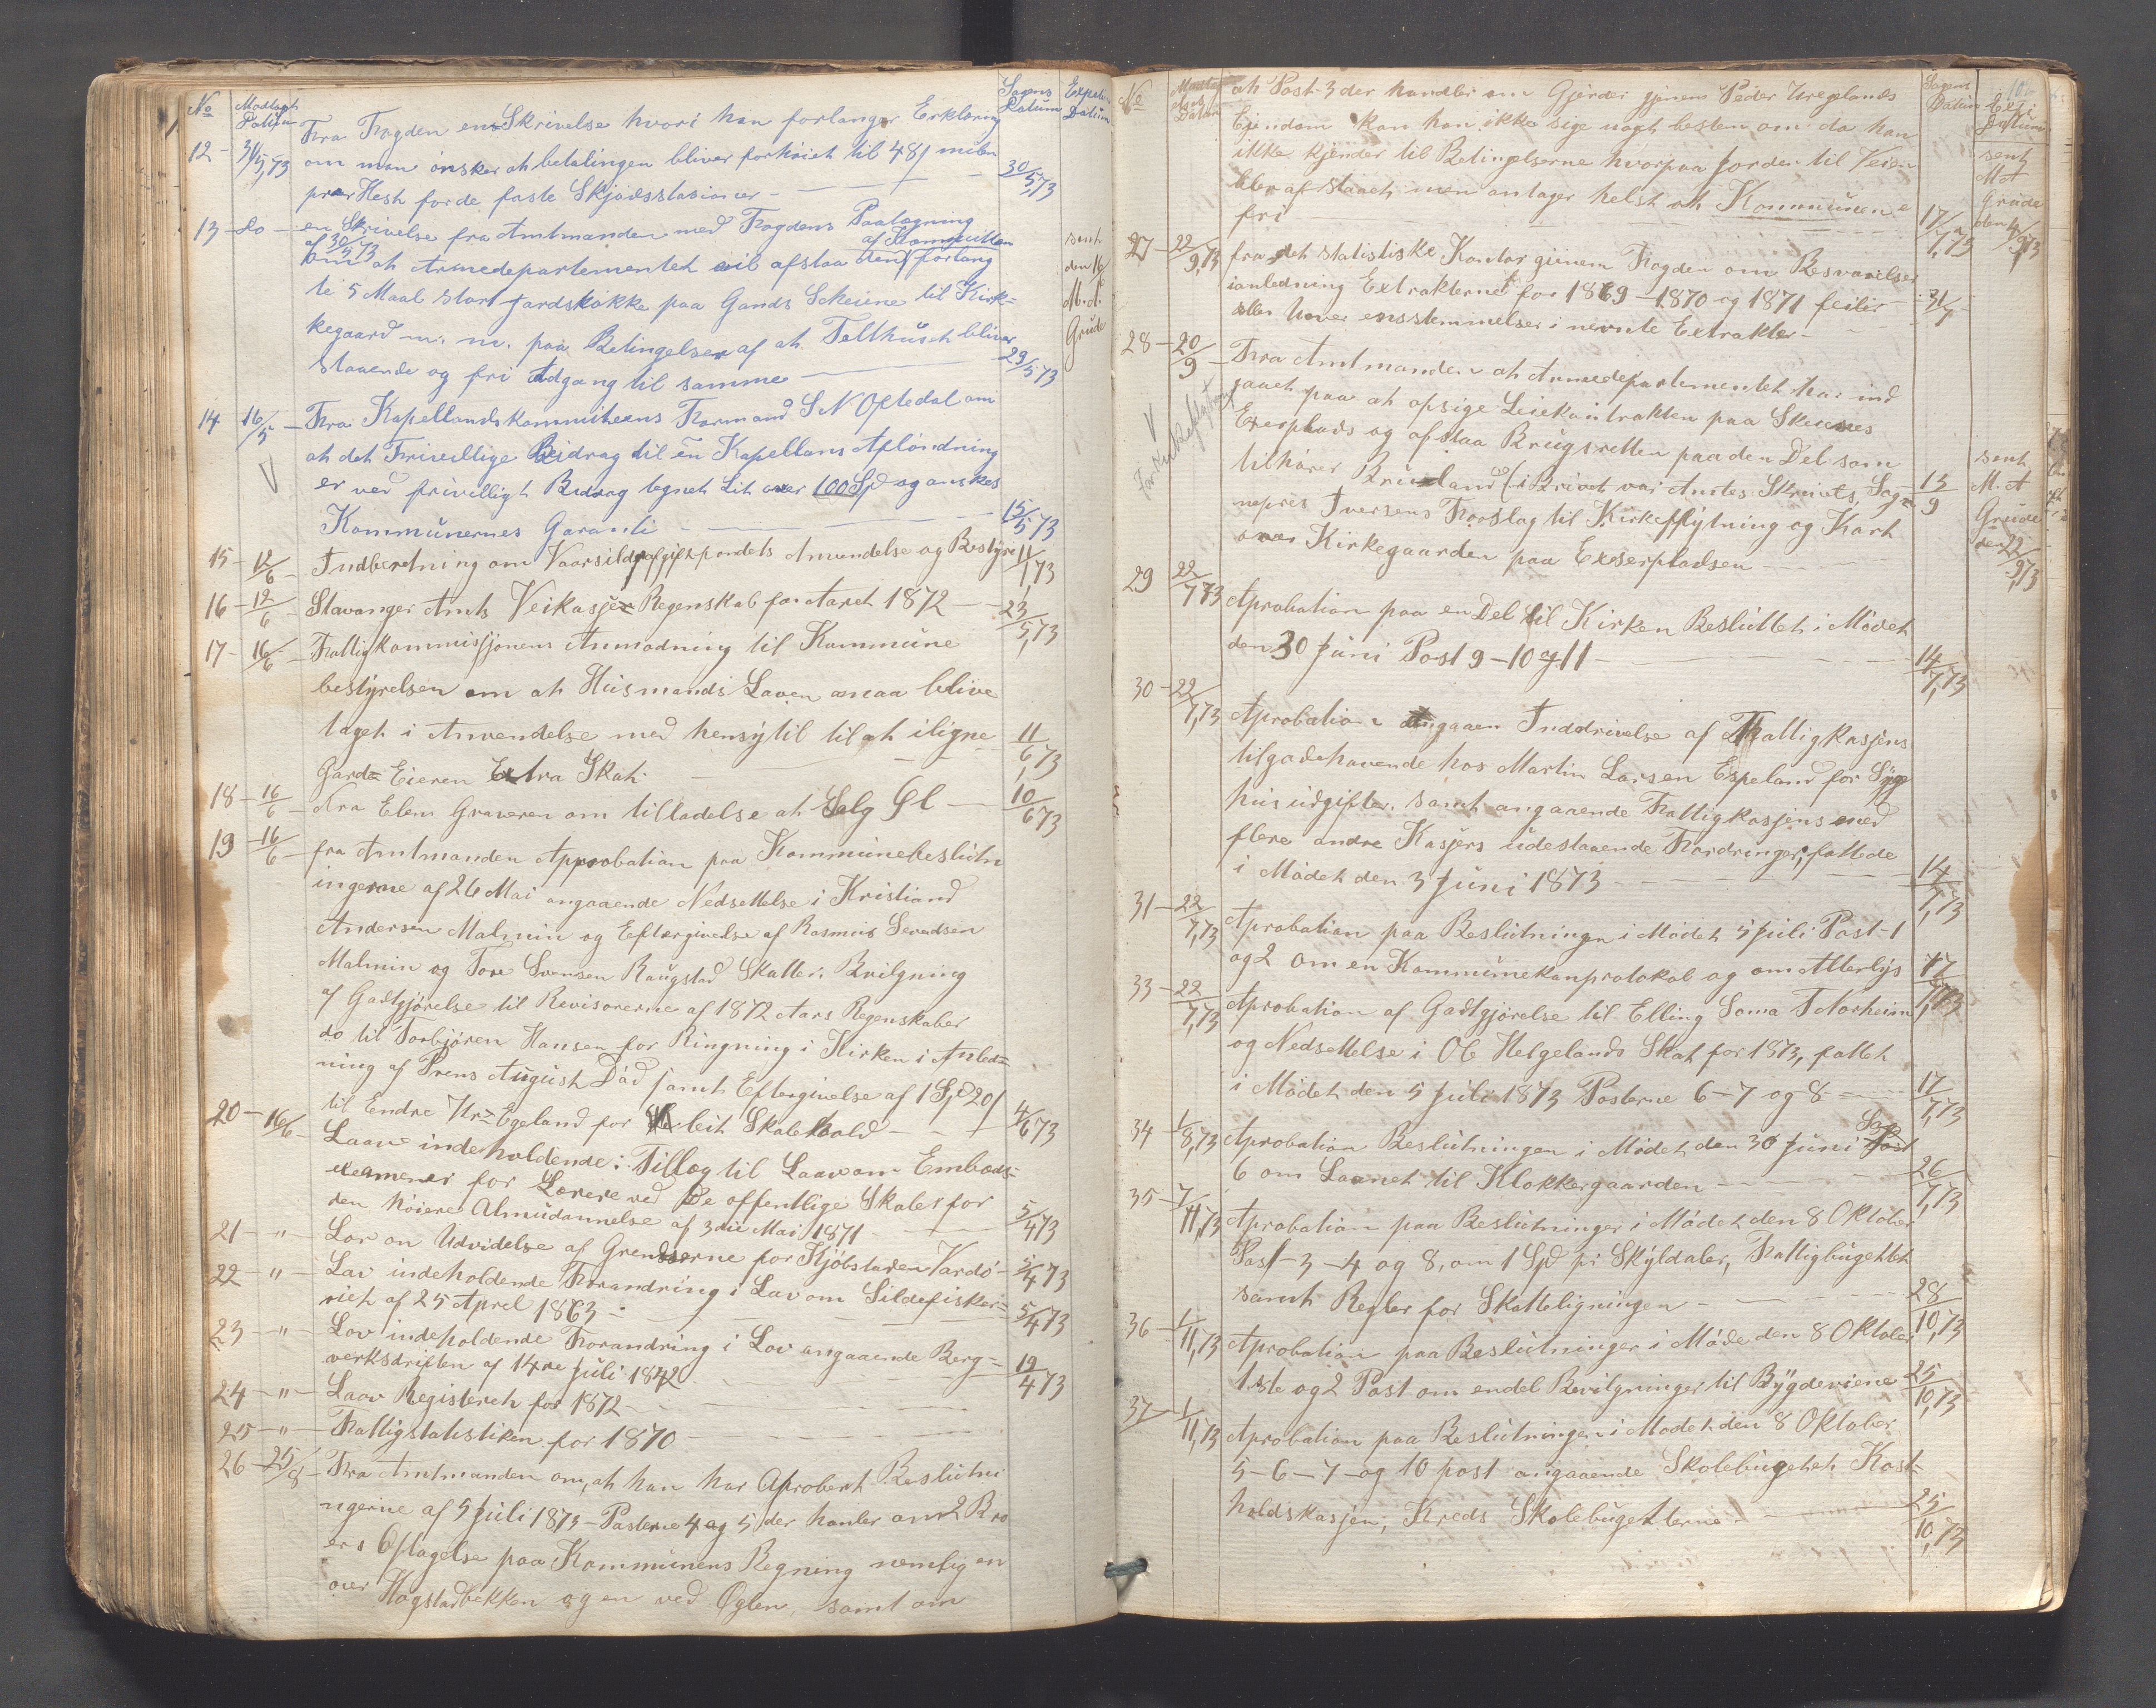 No Modtagt Datum Sagens Datum Exped. Datum
12 - 31/5,73 Fra Fogden en Skrivelse hvori han forlanger Erklæring
om man önsker at betalingen bliver forhöiet til 48/ milen
prær Hest for de faste Skjödsstasioner - 30/5,73
13 - do - en Skrivelse fra Amtmanden med Fogdens Paategning
af 30/5 73 af Kommitten
om at Armedepartementet vil afstaa den forlang
te 5 Maal stort Jordstökke paa Gands Skeiene til Kirk=
kegaard m. m. paa Betingelser af at Telthuset bliver
staaende og fri Adgang til samme - 29/5 73
sent
den 16
M. A.
Grude
14 16/5 - Fra Kapellandskommiteens Formand S N Oftedal om
at det Frivillige Bidrag til en Kapellans Aflöndning
er ved frivilligt Bidrag tegnet Lit over 100 Spd og önskes
Kommünernes Garanti - 15/5 73
15 - 12/6 - Indberetning om Vaarsildafgiftsfondets Anvendelse og Bestyre 11/1,73
16 - 12/6 - Stavanger Amts Veikasse Regenskab for Aaret 1872 - 23/5,73
17 - 16/6 - Fattigkommissjonens Anmodning til Kommüne
bestyrelsen om at Hüsmands Loven maa blive
taget i Anvendelse med hensyn til til at iligne
Gards Eieren Extra Skat - 11/6,73
18 - 16/6 - Fra Elen Graveren om tilladelse at Selg Öl - 10/6 73
19 - 16/6 - fra Amtmanden Approbation paa Kommünebeslütn
ingerne af 26 Mai angaaende Nedsettelse i Kristiand
Andersen Malmin og Eftergivelse af Rasmus Sevendsen
Malmin og Tore Svensen Raugstad Skatter. Bevilgning
af Godtgjörelse til Revisorerne af 1872 Aars Regenskaber
do til Torbjören Hansen for Ringning i Kirken i Anled=
ning af Prens August Död samt Eftergivelse af 1 Spd 20/
til Endre Kr= Egeland for leit Skolehold - 4/6 73
20 - 16/6 - Laav indeholdende: Tillæg til Laav om Embeds=
examener for Lærere ved de offentlige Skoler for
den höiere Almüdannelse af 3die Mai 1871 - 5/4 73
21 - " - Lov om Udvidelse af Grendserne for Kjöbstaden Vardö - 5/4 73
22 - " - Lov indeholdende Forandring i Lov om Sildefisker=
riet af 25 April 1863 - 5/4 73
23 - " - Lov indeholdende Forandring i Lov angaaende Berg=
verksdriften af 14de Jüli 1842 - 19/4 73
24 - " - Laav Registeret for 1872 -
25 - " - Fattigstatistiken for 1870 -
26 - 25/8 - Fra Amtmanden om, at han har Aprobert Beslütni
ngerne af 5 Jüli 1873 - Posterne 4 og 5 der hanler om 2 Bro
ers Optagelse paa Kommünens Regning nemlig en
over Hogstadbekken og en ved Oglen, samt om
No Modtagelses Datum Sagens Datum Exp. Datum
at Post 3 der handler om Gjerder gjenem Peder Uregelands
Eiendom kan han ikke sige nogt besten om da han
ikke kjender til Betingelserne hvorpaa Jorden til Veien
blev afstaaet men antager helst at Kommünen e
fri - 17/7,73
sent
M A
Grude
den 4/9 73
27 - 22/9,73 fra det statistiske Kontor gjenem Fogden om Besvarelser
i anledning Extrakterne for 1869 - 1870 og 1871 feiler - 31/7
eller Uover ensstemmelser i nevnte Extrakter -
28 - 20/9 - Fra Amtmanden at Armedepartementet har ind
gaaet paa at opsige Leiekontrakten paa Skeienes
Exerplads og afstaa Brugsretten paa den Del som
tilhörer Brueland (i Brevet var Amtes Skrivets, Sogn 13/9
nepres Iversens Forslag til Kirkeflytning og Kart
over Kirkegaarden paa Exserpladsen -
sent
M. A
Grude
den 22/9,73
29 22/7 73 Aprobation paa en Del til Kirken Beslüttet i Mödet
den 30 Jüni Post 9 - 10 og 11 - 14/7,73
30 - 22/7,73 Aprobation Angaaen Inddrivelse af Fattigkasjens
tilgodehavende hos Martin Larsen Espeland for Syge
hüsüdgifter. samt angaaende Fattigkasjens med
flere andre Kasjers üdestaaende Fordringer, fattede
i Mödet den 3 Jüni 1873 - 14/7,73
31 - 22/7,73 Aprobation paa Beslütninger i Mödet 5 Jüli Post 1
og 2 om en Kommünekopiprotokol og om Alterlys 17/7,73
33 - 22/7,73 Aprobation af Godtgjörelse til Elling Soma T Norheim
og Nedsettelse i Ol Helgelands Skat for 1873, fattet
i Mödet den 5 Jüli 1873 Posterne 6 - 7 og 8 - 17/7,73
34 - 1/8,73 Aprobation Beslütningen i Mödet den 30 Jüni Sag
6 om Laanet til Klokkergaarden - 26/7,73
35 - 7/11,73 Aprobation paa Beslütninger i Mödet den 8 Oktober
Post 3 - 4 og 8, om 1 Spd pr Skyldaler, Fattigbügettet
samt Regler for Skatteligningen - 28/10,73
36 - 1/11,73 Aprobation paa Beslütninger i Möde den 8 Oktober
1ste og 2 Post om endel Bevilgninger til Bygdeveiene 25/10,73
37 - 1/11,73 Aprobation paa Beslütningen i Mödet den 8 Oktober
5 - 6 - 7 og 10 post angaaende Skolebügetet Kost=
holdskasjen, Kreds Skolebügetterne - 25/10,73